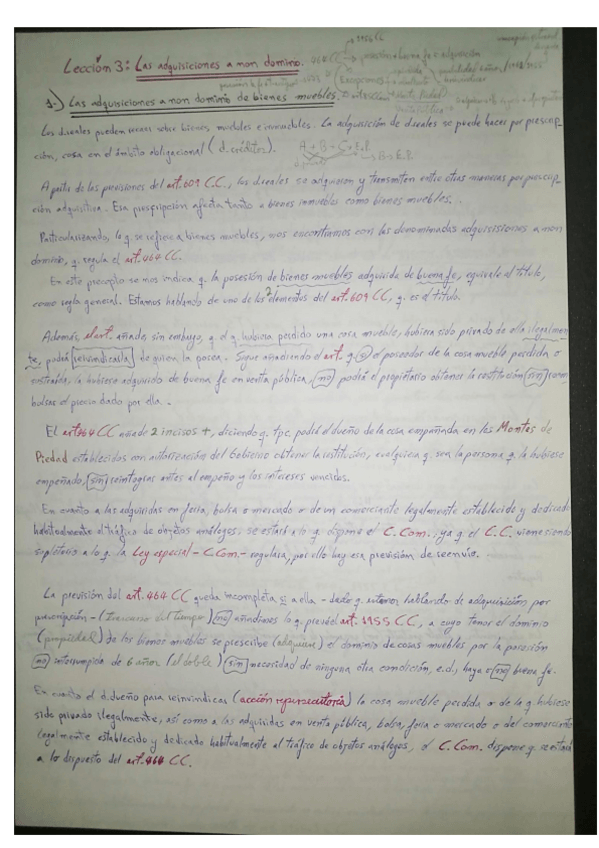 1955 CC
Lección 3: Las adquisiciones a non domino. 464 CC → posesión + buena fe = adquisición
Excepciones
1.) Las adquisiciones a non domino de bienes muebles.
Los d.reales pueden recaer sobre bienes muebles e inmuebles. La adquisición de d.reales se puede hacer por prescrip-
ción, cosa en el ámbito obligacional (d. créditos). A + B = C + E.P.
→ B > E.P.
A partir de las previsiones del art. 609 C.C., los d.reales se adquieren y transmiten entre otras maneras por prescrip-
ción adquisitiva. Esa prescripción afecta tanto a bienes inmuebles como bienes muebles.
Particularizando, lo q. se refiere a bienes muebles, nos encontramos con las denominadas adquisiciones a non
domino, q. regula el art. 464 CC.
En este precepto se nos indica q. la posesión de bienes muebles adquirida de buena fe, equivale al título,
como regla general. Estamos hablando de uno de los 2 elementos del art. 609 CC, q. es el título.
Además, el art. añade, sin embargo, q. el q. hubiera perdido una cosa mueble, hubiera sido privado de ella ilegalmen-
te, podrá reivindicarla de quien la posea. Sigue añadiendo el art. q. si el poseedor de la cosa mueble perdida o
sustraída, la hubiese adquirido de buena fe en venta pública, no podrá el propietario obtener la restitución sin reem-
bolsar el precio dado por ella.
El art. 464 CC añade 2 incisos +, diciendo q. tpc. podrá el dueño de la cosa empeñada en los Montes de
Piedad establecidos con autorización del Gobierno obtener la restitución, cualquiera q. sea la persona q. la hubiese
empeñado, sin reintegrar antes el empeño y los intereses vencidos.
En cuanto a las adquiridas en feria, bolsa o mercado o de un comerciante legalmente establecido y dedicado
habitualmente al tráfico de objetos análogos, se estará a lo q. dispone el C.Com., ya q. el C.C. viene siendo
supletorio a lo q. la Ley especial - C.Com. - regulara, por ello hay esa previsión de reenvío.
La previsión del art. 464 CC queda incompleta si a ella - dado q. estamos hablando de adquisición por
prescripción - (transcurso del tiempo) no añadimos lo q. prevé el art. 1955 CC, a cuyo tenor el dominio
(propiedad) de los bienes muebles se prescribe (adquiere) el dominio de cosas muebles por la posesión
no interrumpida de 6 años (el doble) sin necesidad de ninguna otra condición, e.d., haya o no buena fe.
En cuanto al d. dueño para reivindicar (acción reipersecutoria) la cosa mueble perdida o de la q. hubiese
sido privado ilegalmente, así como a las adquiridas en venta pública, bolsa, feria o mercado o del comerciante
legalmente establecido y dedicado habitualmente al tráfico de objetos análogos, el C.Com. dispone q. se estará
a lo dispuesto del art. 464 CC.